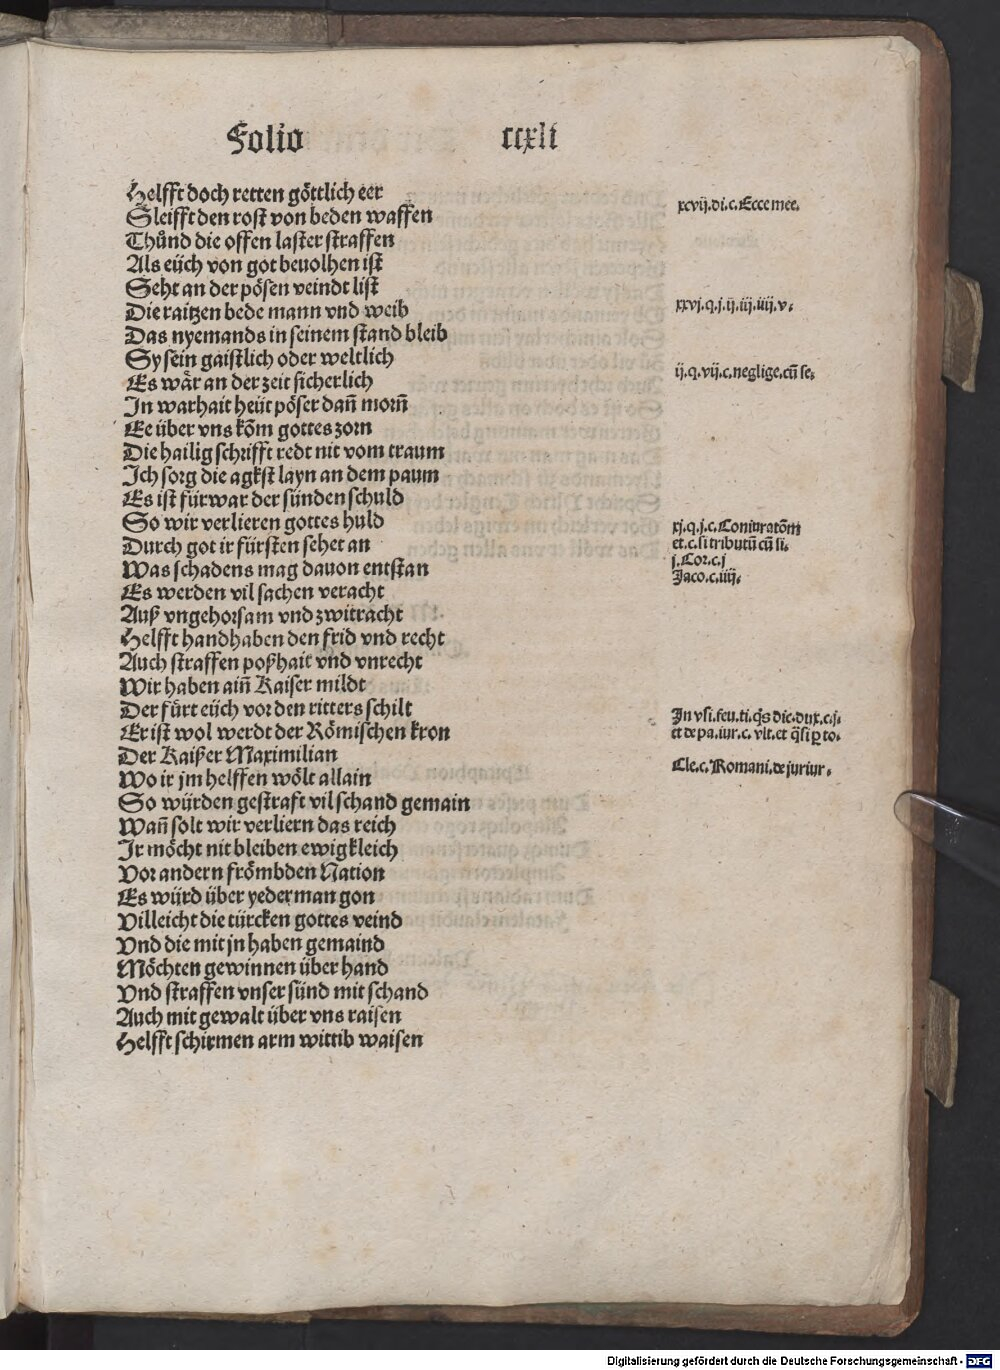 Folio ccxli
Helfft doch retten göttlich eer
Sleifft den rost von beden waffen
Thůnd die offen laster straffen
Als eüch von got beuolhen ist
Seht an der pösen veindt list
Die raitzen bede mann vnd weib
Das nyemands in seinem stand bleib
Sy sein gaistlich oder weltlich
Es wär an der zeit sicherlich
In warhait heüt pöser dañ morñ
Ee über vns kõm gottes zorn
Die hailig schrifft redt nit vom traum
Ich sorg die agkst layn an dem paum
Es ist fürwar der sünden schuld
So wir verlieren gottes huld
Durch got ir fürsten sehet an
Was schadens mag dauon entstan
Es werden vil sachen veracht
Auß vngehorsam vnd zwitracht
Helfft handhaben den frid vnd recht
Auch straffen poßhait vnd vnrecht
Wir haben aiñ Kaiser mildt
Der fürt eüch vor den ritters schilt
Er ist wol werdt der Römischen kron
Der Kaißer Maximilian
Wo ir jm helffen wölt allain
So würden gestraft vil schand gemain
Wañ solt wir verliern das reich
Ir möcht nit bleiben ewigkleich
Vor andern frömbden Nation
Es würd über yederman gon
Villeicht die türcken gottes veind
Vnd die mit jn haben gemaind
Möchten gewinnen über hand
Vnd straffen vnser sünd mit schand
Auch mit gewalt über vns raisen
Helfft schirmen arm wittib waisen
xcvij.di.c.Ecce mee.
xxvj.q.j.ij.iij.iiij.v.
ij.q.vij.c.neglige.cū se.
xj.q.j.c.Coniuratōm
et.c.si tributū cū si.
j.Cor.c.j
Jaco.c.iiij.
In vsi.feu.ti.q̄s dic.dux.c.j.
et de pa.iur.c.vlt.et q̄si ꝑ to.
Cle.c.Romani.de juriur.
Digitalisierung gefördert durch die Deutsche Forschungsgemeinschaft - DFG